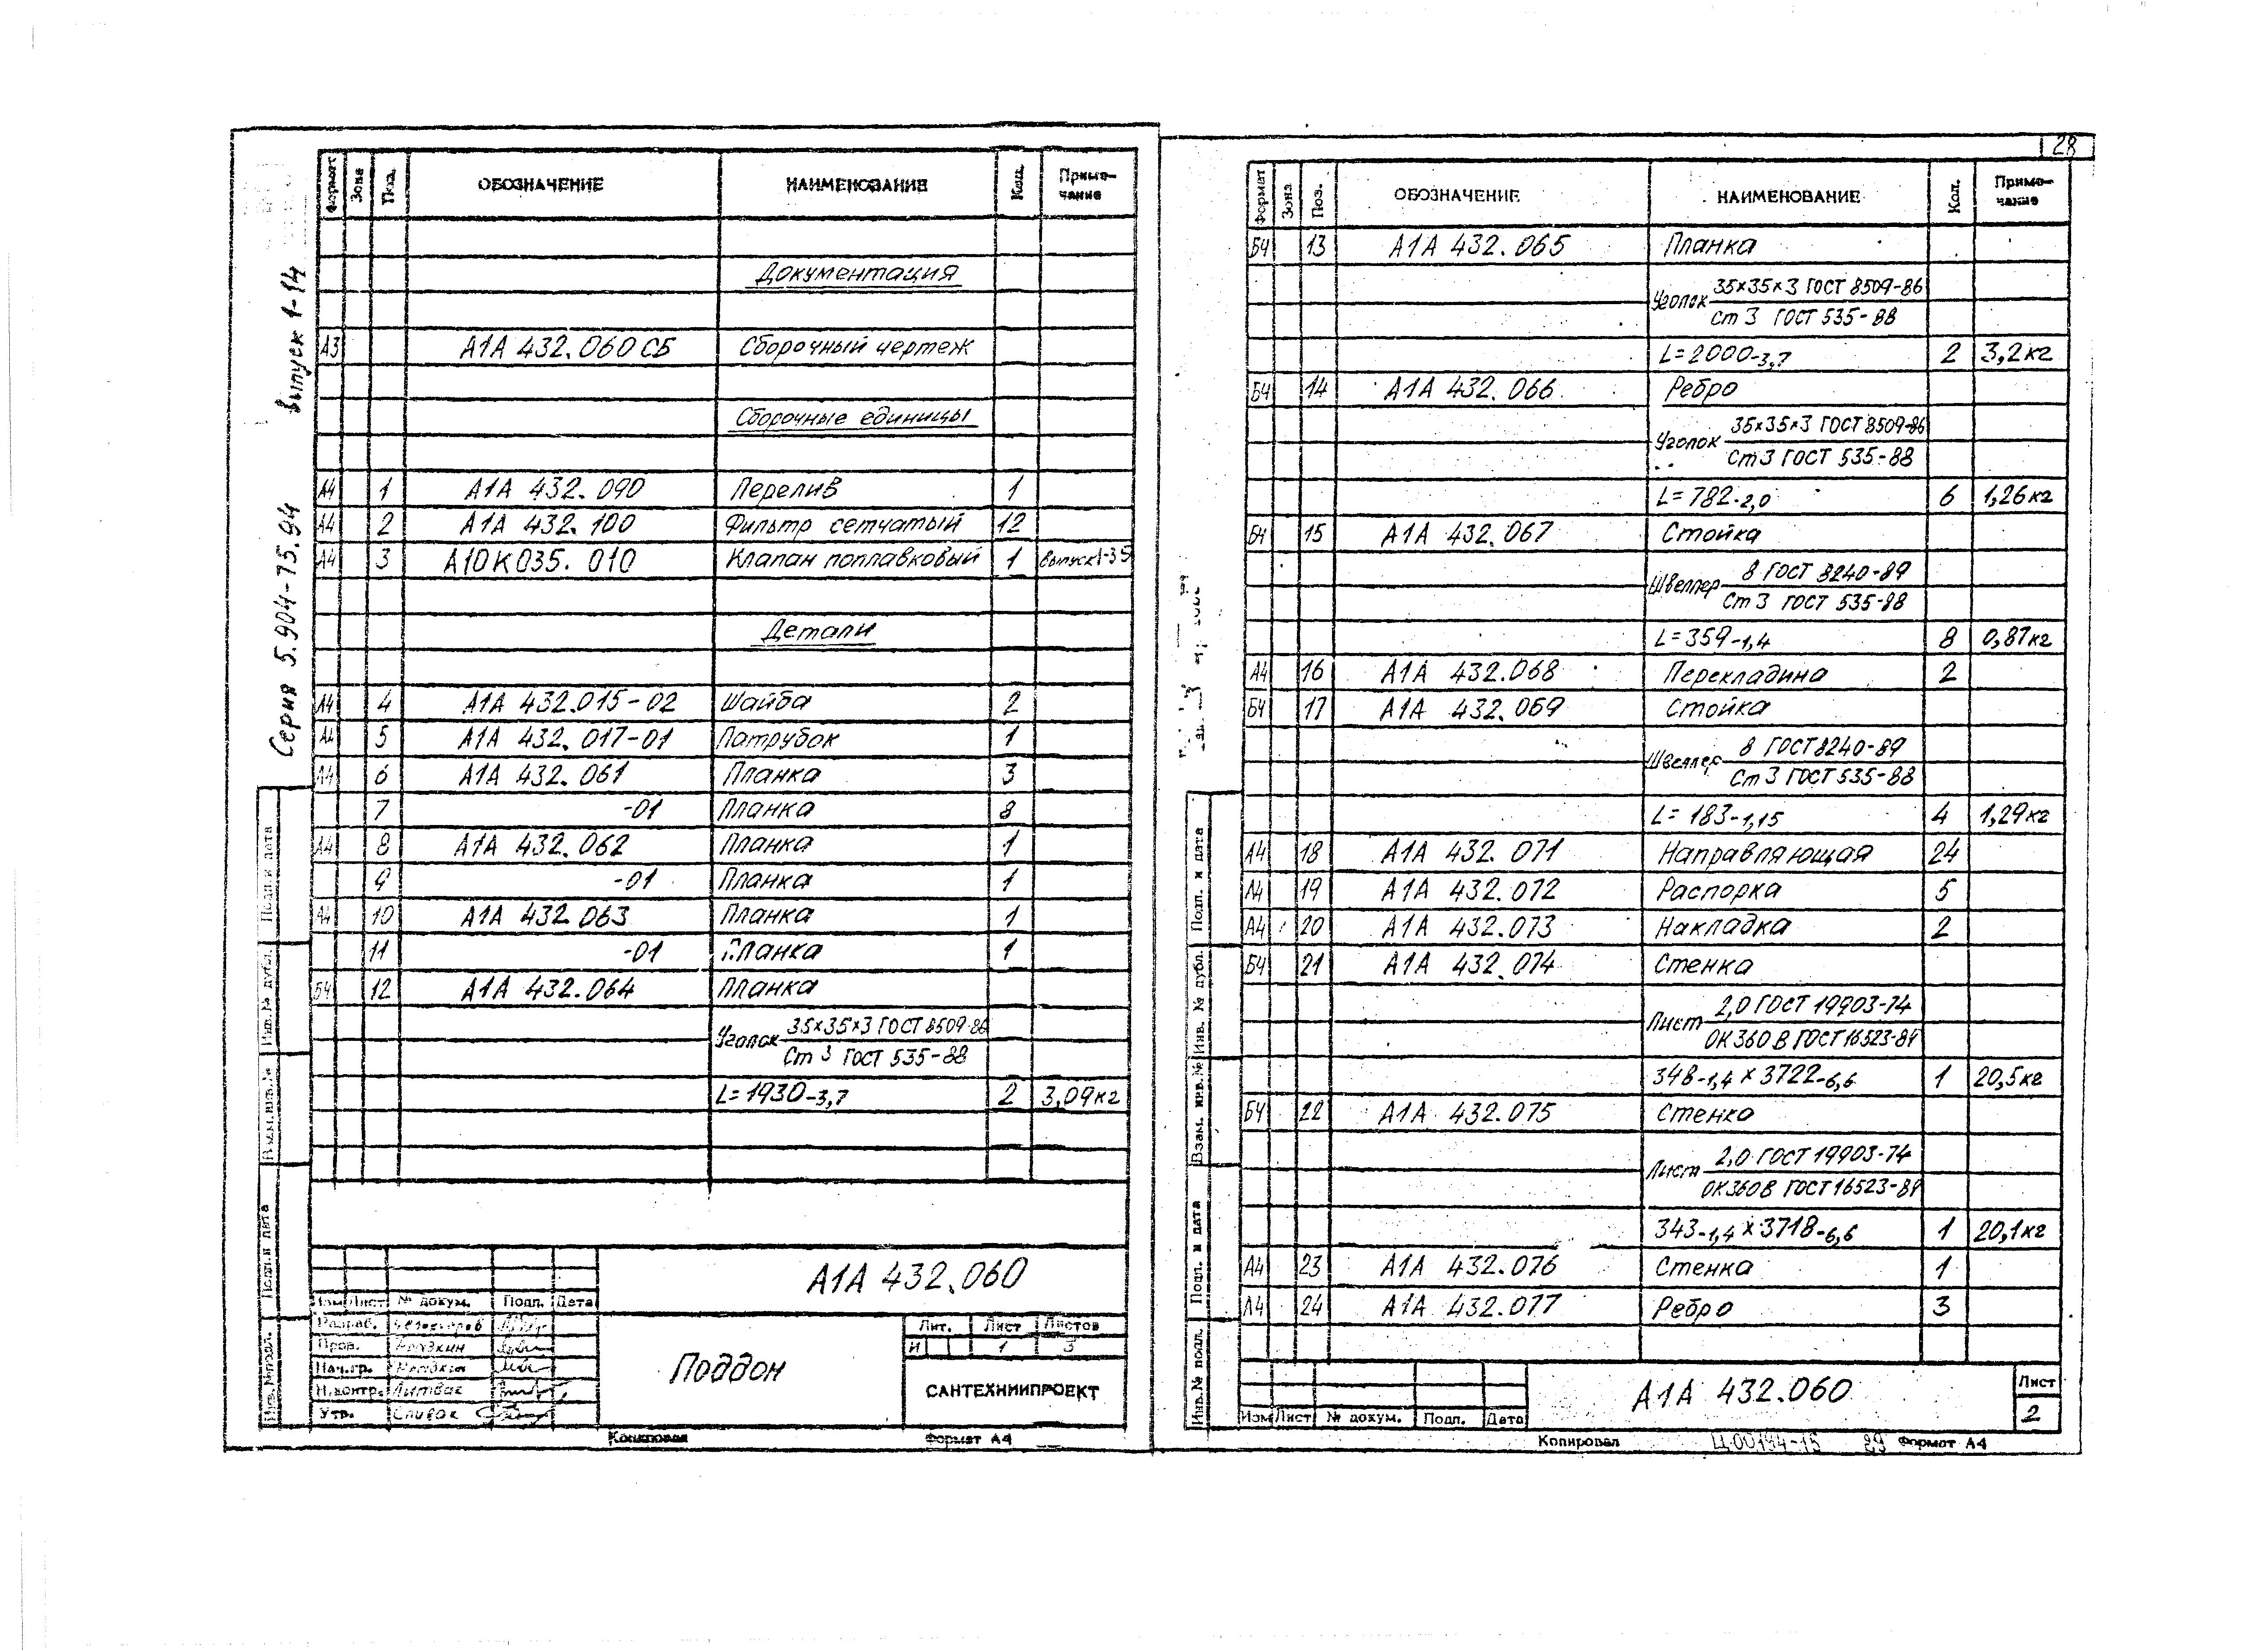 Серия 5.904-75.94 Выпуск 1-14
Формат Зона Поз. ОБОЗНАЧЕНИЕ НАИМЕНОВАНИЕ Кол. Приме-чание
Документация
А3 А1А 432.060 СБ Сборочный чертеж
Сборочные единицы
А4 1 А1А 432.090 Перелив 1
А4 2 А1А 432.100 Фильтр сетчатый 12
А4 3 А10К035.010 Клапан поплавковый 1 Выпуск1-35
Детали
А4 4 А1А 432.015-02 Шайба 2
А4 5 А1А 432.017-01 Патрубок 1
А4 6 А1А 432.061 Планка 3
7 -01 Планка 8
А4 8 А1А 432.062 Планка 1
9 -01 Планка 1
А4 10 А1А 432.063 Планка 1
11 -01 Планка 1
БЧ 12 А1А 432.064 Планка
Уголок 35х35х3 ГОСТ 8509-86
Ст 3 ГОСТ 535-88
L=1930-3,7 2 3,09кг
А1А 432.060
Изм Лист № докум. Подп. Дата
Разраб.
Пров.
Нач.гр.
Н.контр. Литвак
Утв. Спивак
Поддон
Лит. Лист Листов
И 1 3
САНТЕХНИИПРОЕКТ
Копировал Формат А4
Подп. и дата
Инв.№ дубл.
Взам.инв.№
Подп. и дата
Инв.№ подл.
28
Формат Зона Поз. ОБОЗНАЧЕНИЕ НАИМЕНОВАНИЕ Кол. Приме-чание
БЧ 13 А1А 432.065 Планка
Уголок 35х35х3 ГОСТ 8509-86
Ст 3 ГОСТ 535-88
L=2000-3,7 2 3,2кг
БЧ 14 А1А 432.066 Ребро
Уголок 35х35х3 ГОСТ 8509-86
Ст3 ГОСТ 535-88
L=782-2,0 6 1,26кг
БЧ 15 А1А 432.067 Стойка
Швеллер 8 ГОСТ 8240-89
Ст 3 ГОСТ 535-88
L=359-1,4 8 0,87кг
А4 16 А1А 432.068 Перекладина 2
БЧ 17 А1А 432.069 Стойка
Швеллер 8 ГОСТ8240-89
Ст 3 ГОСТ 535-88
L=183-1,15 4 1,29кг
А4 18 А1А 432.071 Направляющая 24
А4 19 А1А 432.072 Распорка 5
А4 20 А1А 432.073 Накладка 2
БЧ 21 А1А 432.074 Стенка
Лист 2,0 ГОСТ 19903-74
ОК360В ГОСТ16523-89
348-1,4 х 3722-6,6 1 20,5кг
БЧ 22 А1А 432.075 Стенка
Лист 2,0 ГОСТ 19903-74
ОК360В ГОСТ16523-89
343-1,4 х 3718-6,6 1 20,1кг
А4 23 А1А 432.076 Стенка 1
А4 24 А1А 432.077 Ребро 3
А1А 432.060 Лист
2
Изм Лист № докум. Подп. Дата
Копировал Ц00144-15 29 Формат А4
Подп. и дата
Инв. № дубл.
Взам. инв.№
Подп. и дата
Инв.№ подл.